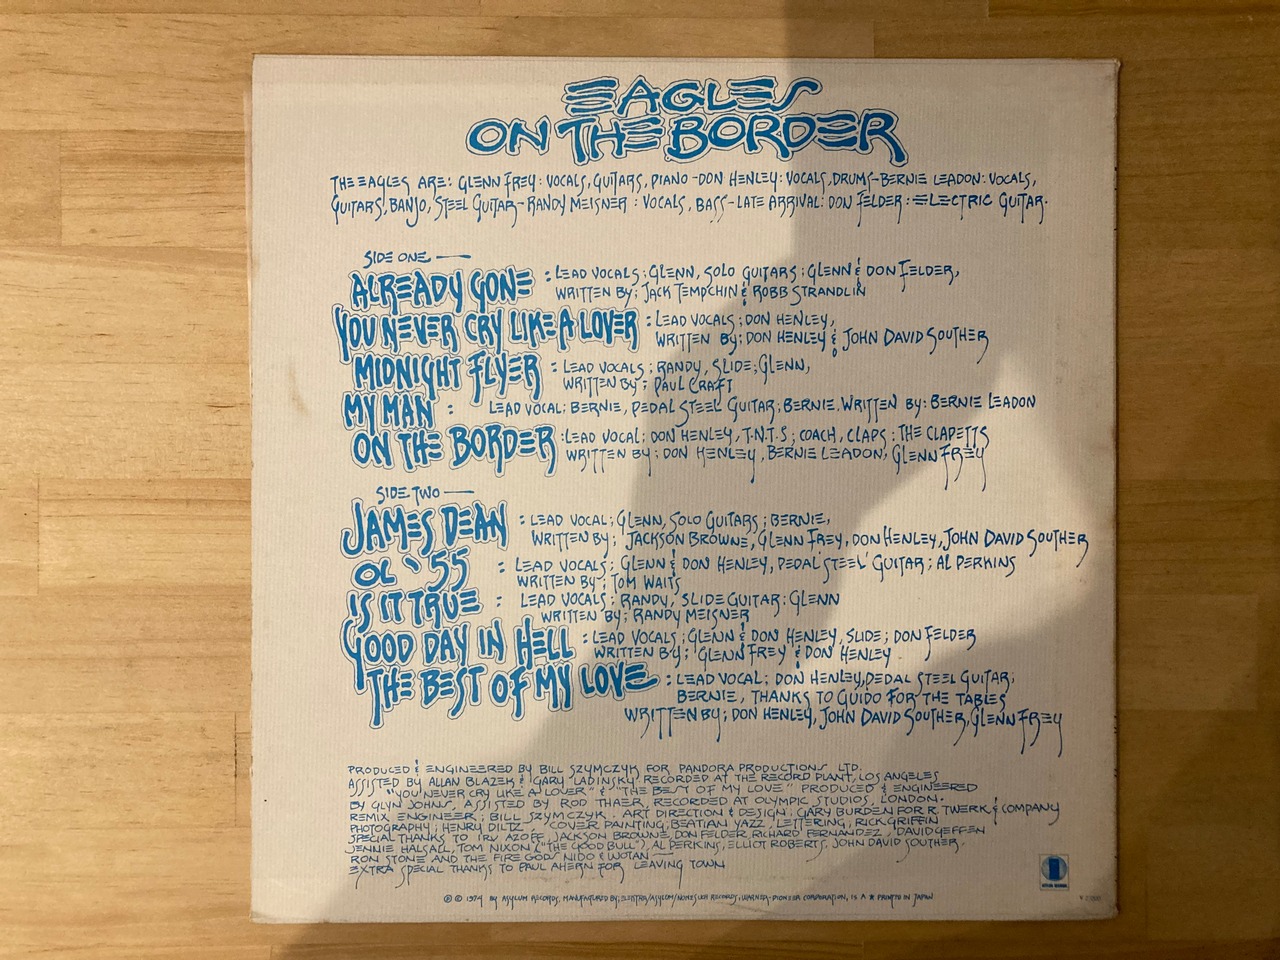 EAGLES
ON THE BORDER
THE EAGLES ARE: GLENN FREY: VOCALS, GUITARS, PIANO-DON HENLEY: VOCALS, DRUMS-BERNIE LEADON: VOCALS,
GUITARS, BANJO, STEEL GUITAR-RANDY MEISNER: VOCALS, BASS-LATE ARRIVAL: DON FELDER: ELECTRIC GUITAR.
SIDE ONE
ALREADY GONE : LEAD VOCALS; GLENN, SOLO GUITARS; GLENN & DON FELDER,
WRITTEN BY; JACK TEMPCHIN & ROBB STRANDLIN
YOU NEVER CRY LIKE A LOVER : LEAD VOCALS; DON HENLEY,
WRITTEN BY; DON HENLEY & JOHN DAVID SOUTHER
MIDNIGHT FLYER : LEAD VOCALS; RANDY, SLIDE; GLENN,
WRITTEN BY; PAUL CRAFT
MY MAN : LEAD VOCAL; BERNIE, PEDAL STEEL GUITAR; BERNIE, WRITTEN BY: BERNIE LEADON
ON THE BORDER : LEAD VOCAL; DON HENLEY, T.N.T.S; COACH, CLAPS; THE CLAPETTS
WRITTEN BY; DON HENLEY, BERNIE LEADON, GLENN FREY
SIDE TWO
JAMES DEAN : LEAD VOCAL; GLENN, SOLO GUITARS; BERNIE,
WRITTEN BY; JACKSON BROWNE, GLENN FREY, DON HENLEY, JOHN DAVID SOUTHER
OL' 55 : LEAD VOCALS; GLENN & DON HENLEY, PEDAL STEEL GUITAR; AL PERKINS
WRITTEN BY; TOM WAITS
IS IT TRUE : LEAD VOCALS; RANDY, SLIDE GUITAR; GLENN
WRITTEN BY; RANDY MEISNER
GOOD DAY IN HELL : LEAD VOCALS; GLENN & DON HENLEY, SLIDE; DON FELDER
WRITTEN BY; GLENN FREY & DON HENLEY
THE BEST OF MY LOVE : LEAD VOCAL; DON HENLEY, PEDAL STEEL GUITAR;
BERNIE, THANKS TO GUIDO FOR THE TABLES
WRITTEN BY; DON HENLEY, JOHN DAVID SOUTHER, GLENN FREY
PRODUCED & ENGINEERED BY BILL SZYMCZYK FOR PANDORA PRODUCTIONS LTD.
ASSISTED BY ALLAN BLAZEK & GARY LADINSKY RECORDED AT THE RECORD PLANT, LOS ANGELES
"YOU NEVER CRY LIKE A LOVER" & "THE BEST OF MY LOVE" PRODUCED & ENGINEERED
BY GLYN JOHNS, ASSISTED BY ROD THAER, RECORDED AT OLYMPIC STUDIOS, LONDON.
REMIX ENGINEER; BILL SZYMCZYK. ART DIRECTION & DESIGN; GARY BURDEN FOR R. TWERK & COMPANY
PHOTOGRAPHY; HENRY DILTZ COVER PAINTING, BEATIAN YAZZ, LETTERING; RICK GRIFFIN
SPECIAL THANKS TO IRV AZOFF, JACKSON BROWNE, DON FELDER RICHARD FERNANDEZ, DAVID GEFFEN
JENNIE HALSALL, TOM NIXON ("THE GOOD BULL"), AL PERKINS, ELLIOT ROBERTS, JOHN DAVID SOUTHER.
RON STONE AND THE FIRE GODS NIDO & WOTAN
EXTRA SPECIAL THANKS TO PAUL AHERN FOR LEAVING TOWN
℗ © 1974 BY ASYLUM RECORDS, MANUFACTURED BY; ELEKTRA/ASYLUM/NONESUCH RECORDS, WARNER-PIONEER CORPORATION, IS A ★ PRINTED IN JAPAN